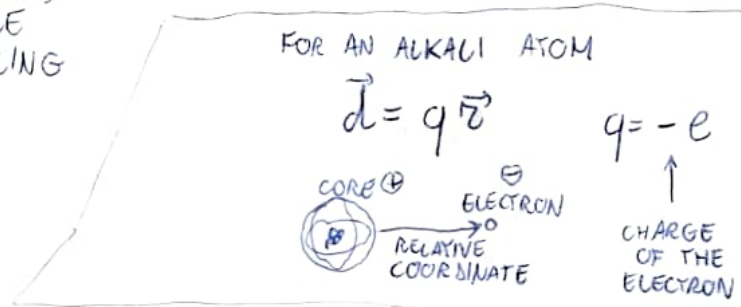 E
LING
FOR AN ALKALI ATOM
d⃗ = q r⃗
q = - e
CORE ⊕
⊖
ELECTRON
RELATIVE
COORDINATE
CHARGE
OF THE
ELECTRON